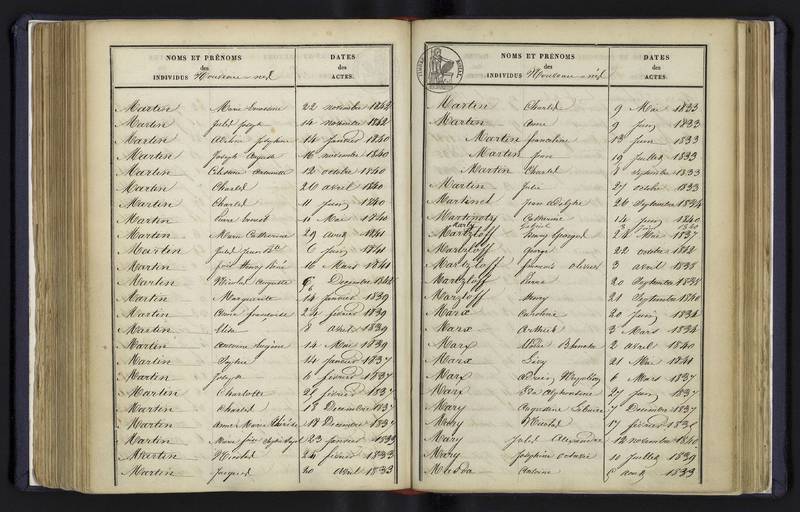 NOMS ET PRÉNOMS
des
INDIVIDUS Nouveau-nés
DATES
des
ACTES.
Martin Marie 22 novembre 1842
Martin Jules Joseph 14 novembre 1842
Martin Joséphine 14 janvier 1840
Martin Joseph Auguste 16 novembre 1840
Martin 12 octobre 1840
Martin Charles 26 avril 1840
Martin Charles 11 juin 1840
Martin Pierre Ernest 11 Mai 1840
Martin Marie Catherine 29 avril 1841
Martin Jules Jean Bte 6 juin 1841
Martin Henry 16 Mars 1841
Martin Nicolas Auguste Décembre 1842
Martin Marguerite 14 janvier 1839
Martin Anne françoise 24 février 1839
Martin Elise 8 avril 1839
Martin Eugène 14 Mai 1839
Martin Sophie 14 janvier 1837
Martin Joseph 4 février 1837
Martin Charlotte 21 février 1837
Martin Charles 18 Décembre 1837
Martin Marie Thérèse 17 Décembre
Martin Marie 23 janvier 1833
Martin Nicolas 24 février 1833
Martin Jacques 20 avril 1833
NOMS ET PRÉNOMS
des
INDIVIDUS Nouveau-nés
DATES
des
ACTES.
Martin Charles 9 Mai 1833
Martin Anne 9 juin 1833
Martin francoline 13 juin 1833
Martin Jean 19 juillet 1833
Martin Charles 8 septembre 1833
Martin Julie 27 octobre 1833
Martinet Jean Adolphe 26 septembre 1834
Martinoty Catherine 14 juin 1840
Marly Gabriel 3 1820
Martzloff Henry Georges 24 Mai 1837
Martzloff George 22 octobre 1842
Martzloff françois Olivier 3 avril 1838
Martzloff Pierre 20 septembre 1838
Marzloff Henry 21 septembre 1840
Marx Caroline 20 juin 1834
Marx Arthur 3 Mars 1834
Marx Blanche 2 avril 1840
Marx Lucy 21 Mai 1841
Marx Adrien Napoléon 6 Mars 1837
Marx Ida Alphonsine 27 juin 1837
Mary Augustine 7 Décembre 1837
Mary Nicolas 17 février
Mary Jules Alexandre 12 novembre 1840
Mary Joséphine Octavie 11 juillet 1839
Antoine août 1833